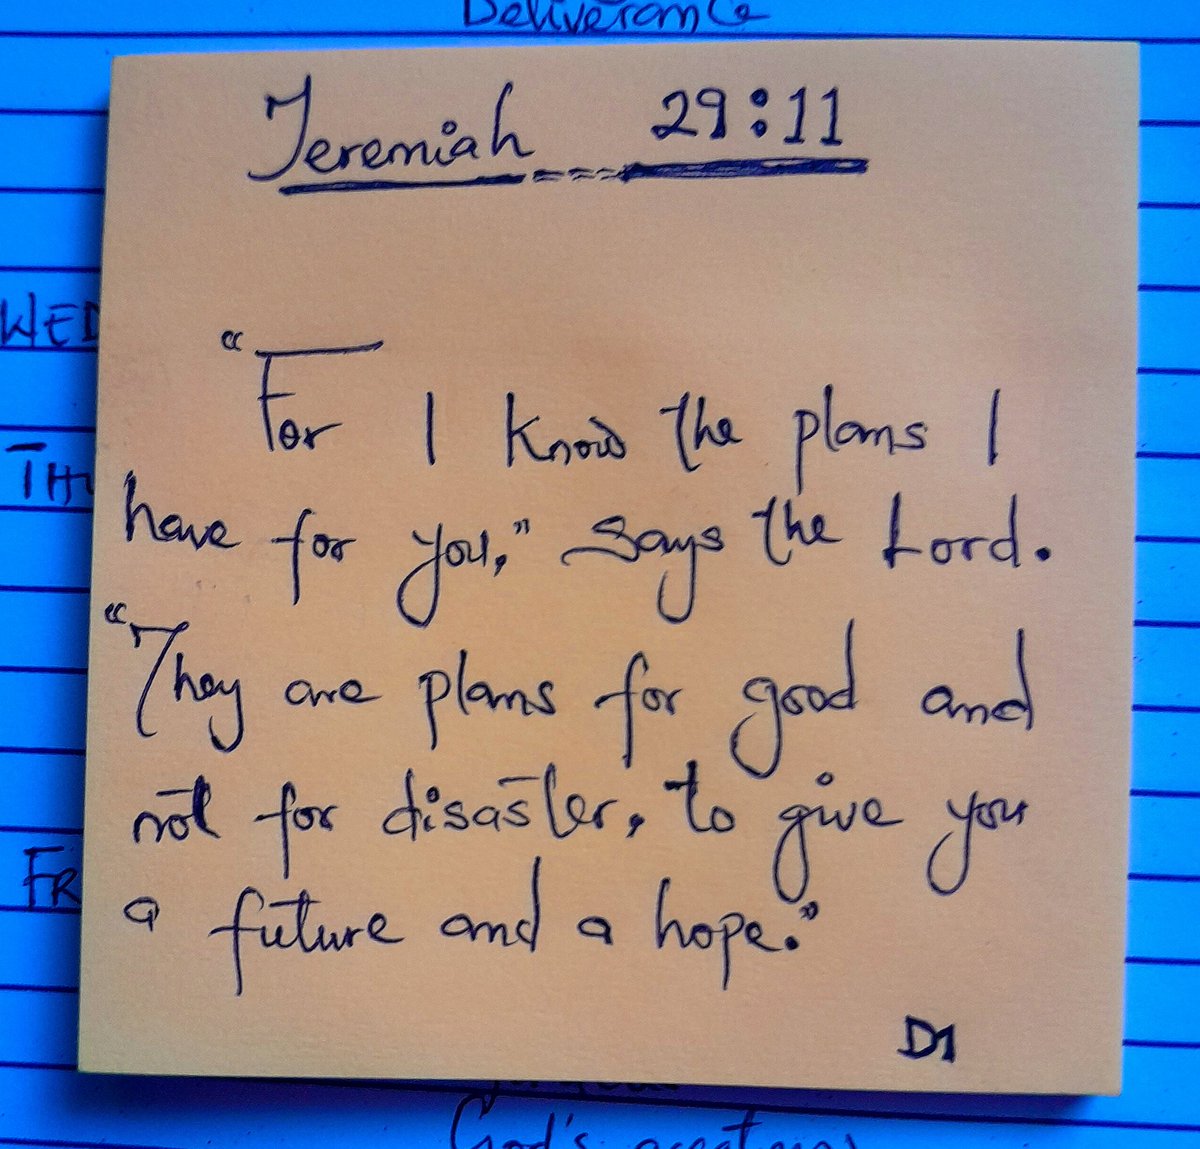 Deliverance
Jeremiah 29:11
WED
"For I know the plans I
THU
have for you," says the Lord.
"They are plans for good and
not for disaster, to give you
FR
a future and a hope."
D1
God's